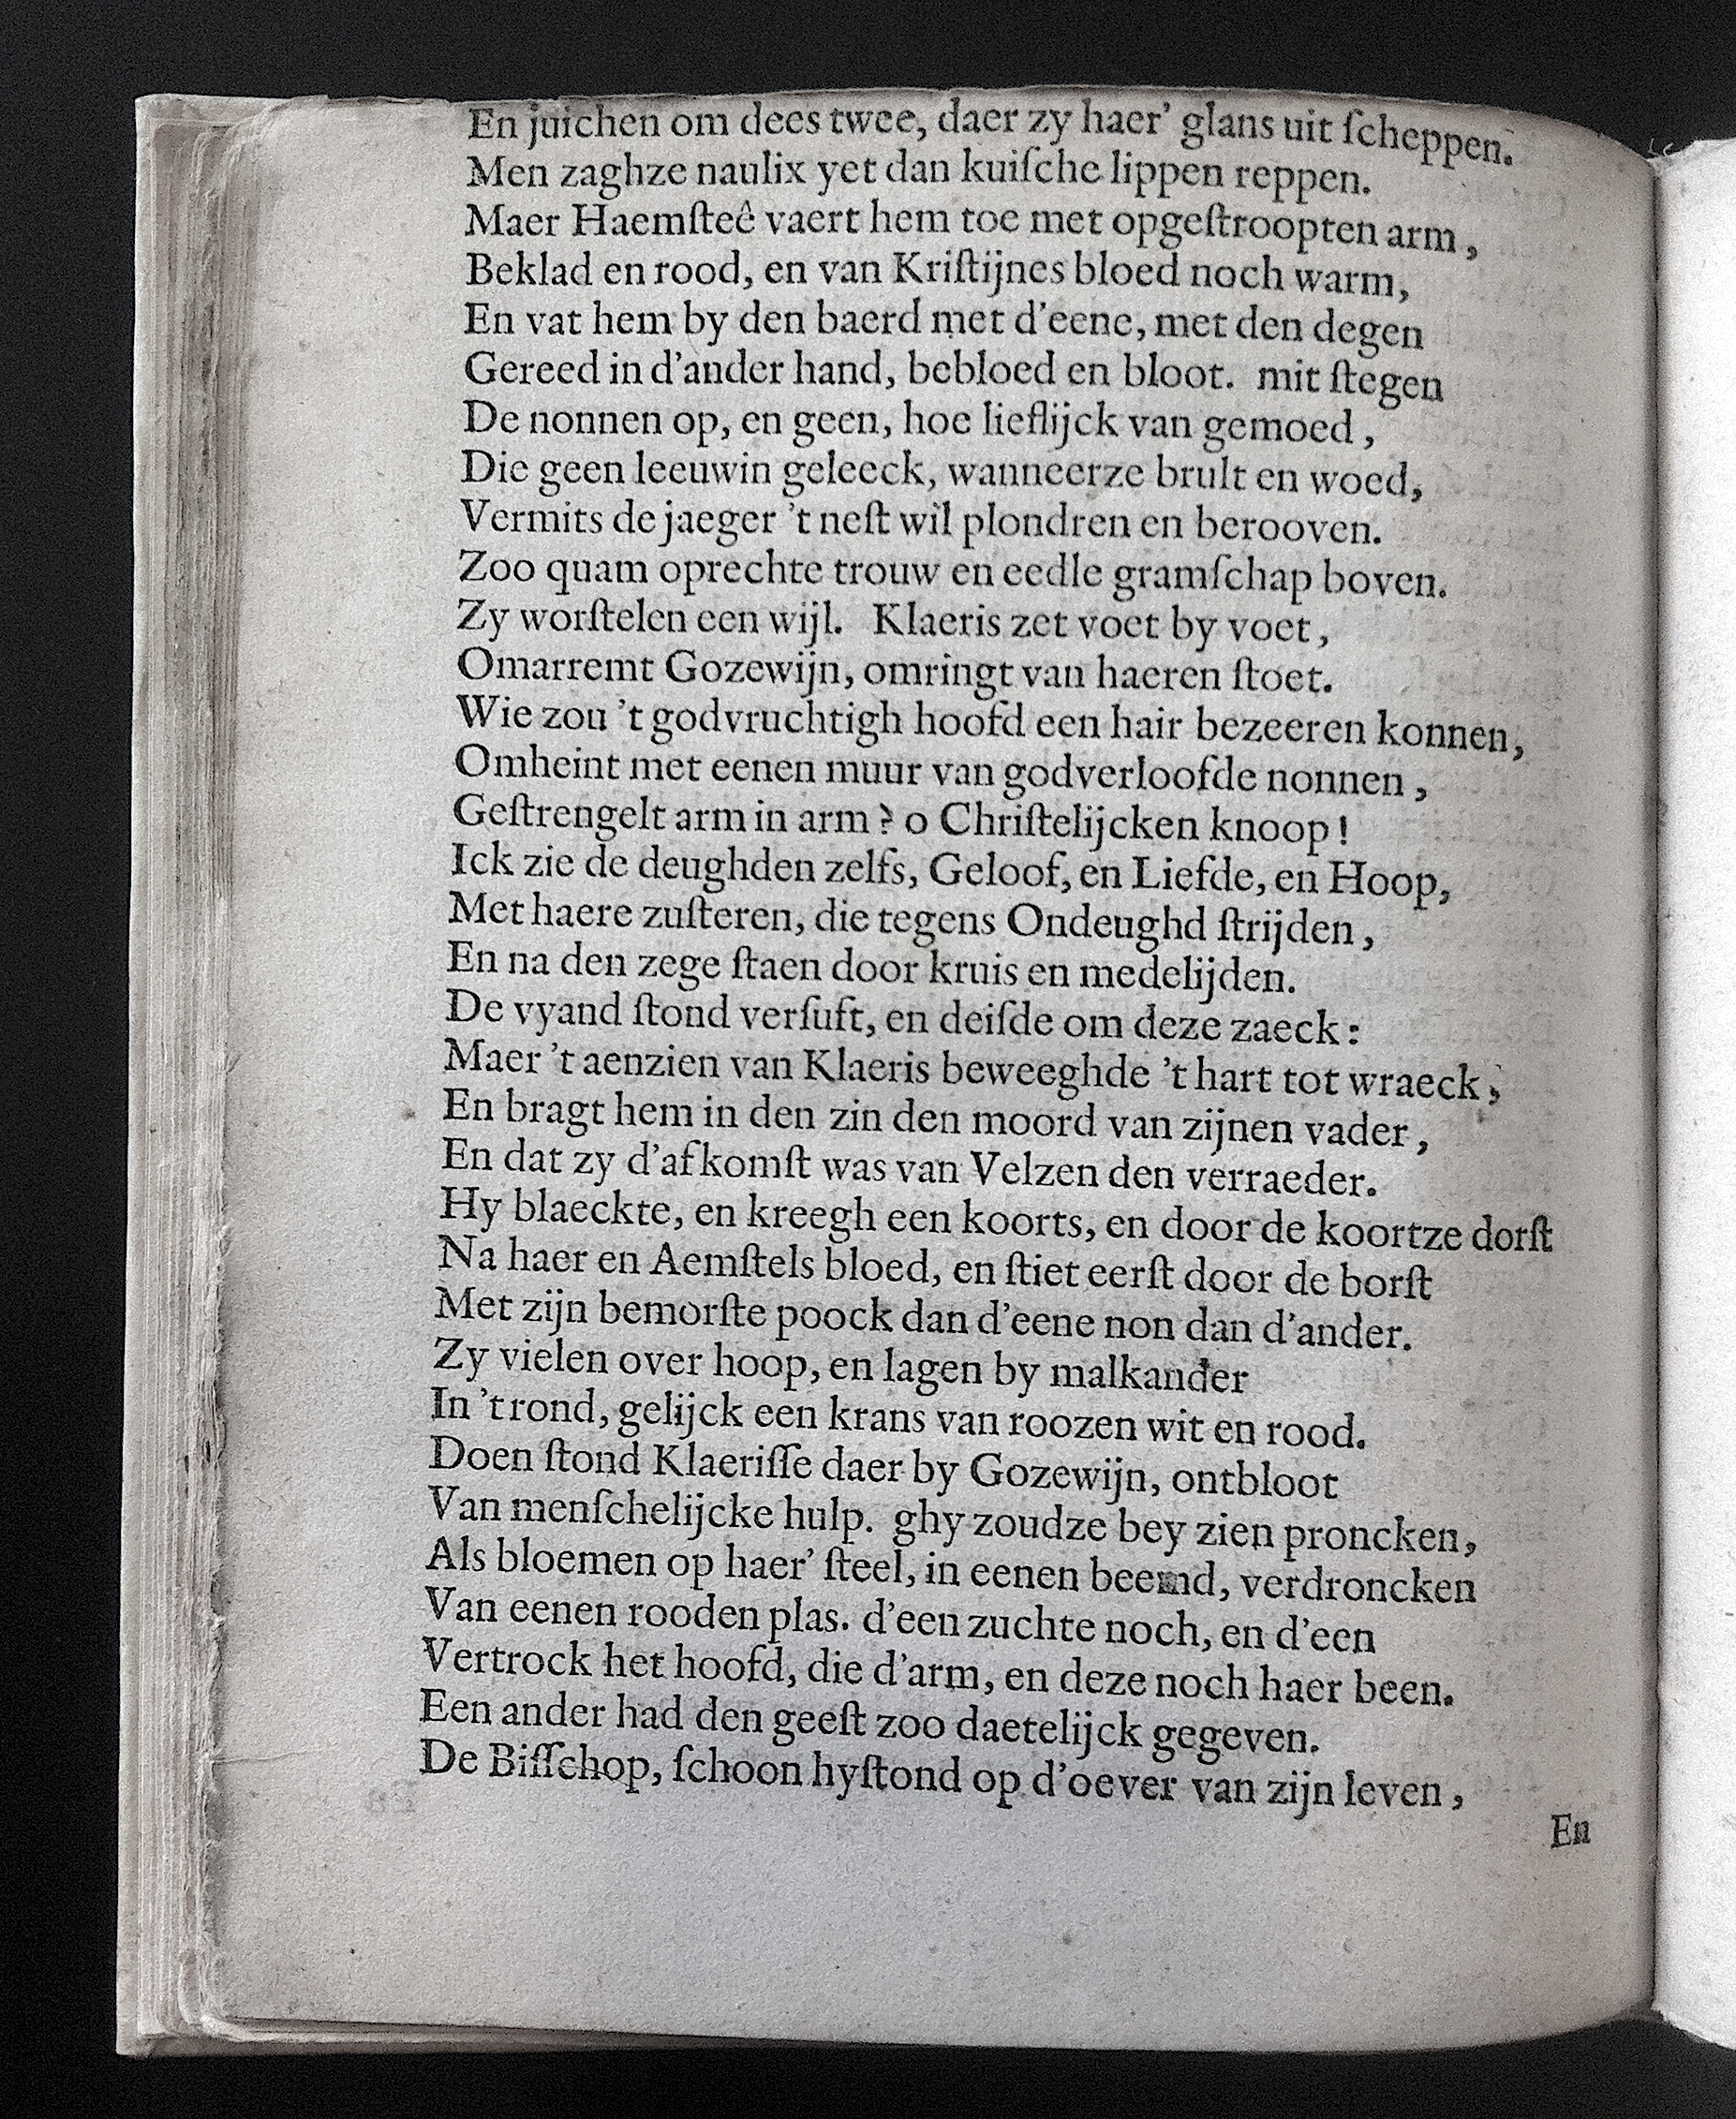 En juichen om dees twee, daer zy haer' glans uit ſcheppen.
Men zaghze naulix yet dan kuiſche lippen reppen.
Maer Haemſteê vaert hem toe met opgeſtroopten arm,
Beklad en rood, en van Kriſtijnes bloed noch warm,
En vat hem by den baerd met d'eene, met den degen
Gereed in d'ander hand, bebloed en bloot. mit ſtegen
De nonnen op, en geen, hoe lieflijck van gemoed,
Die geen leeuwin geleeck, wanneerze brult en woed,
Vermits de jaeger 't neſt wil plondren en berooven.
Zoo quam oprechte trouw en eedle gramſchap boven.
Zy worſtelen een wijl. Klaeris zet voet by voet,
Omarremt Gozewijn, omringt van haeren ſtoet.
Wie zou 't godvruchtigh hoofd een hair bezeeren konnen,
Omheint met eenen muur van godverloofde nonnen,
Geſtrengelt arm in arm? o Chriſtelijcken knoop!
Ick zie de deughden zelfs, Geloof, en Liefde, en Hoop,
Met haere zuſteren, die tegens Ondeughd ſtrijden,
En na den zege ſtaen door kruis en medelijden.
De vyand ſtond verſuft, en deiſde om deze zaeck:
Maer 't aenzien van Klaeris beweeghde 't hart tot wraeck;
En bragt hem in den zin den moord van zijnen vader,
En dat zy d'afkomſt was van Velzen den verraeder.
Hy blaeckte, en kreegh een koorts, en door de koortze dorſt
Na haer en Aemſtels bloed, en ſtiet eerſt door de borſt
Met zijn bemorſte poock dan d'eene non dan d'ander.
Zy vielen over hoop, en lagen by malkander
In 't rond, gelijck een krans van roozen wit en rood.
Doen ſtond Klaeriſſe daer by Gozewijn, ontbloot
Van menſchelijcke hulp. ghy zoudze bey zien proncken,
Als bloemen op haer' ſteel, in eenen beemd, verdroncken
Van eenen rooden plas. d'een zuchte noch, en d'een
Vertrock het hoofd, die d'arm, en deze noch haer been.
Een ander had den geeſt zoo daetelijck gegeven.
De Biſſchop, ſchoon hy ſtond op d'oever van zijn leven,
En